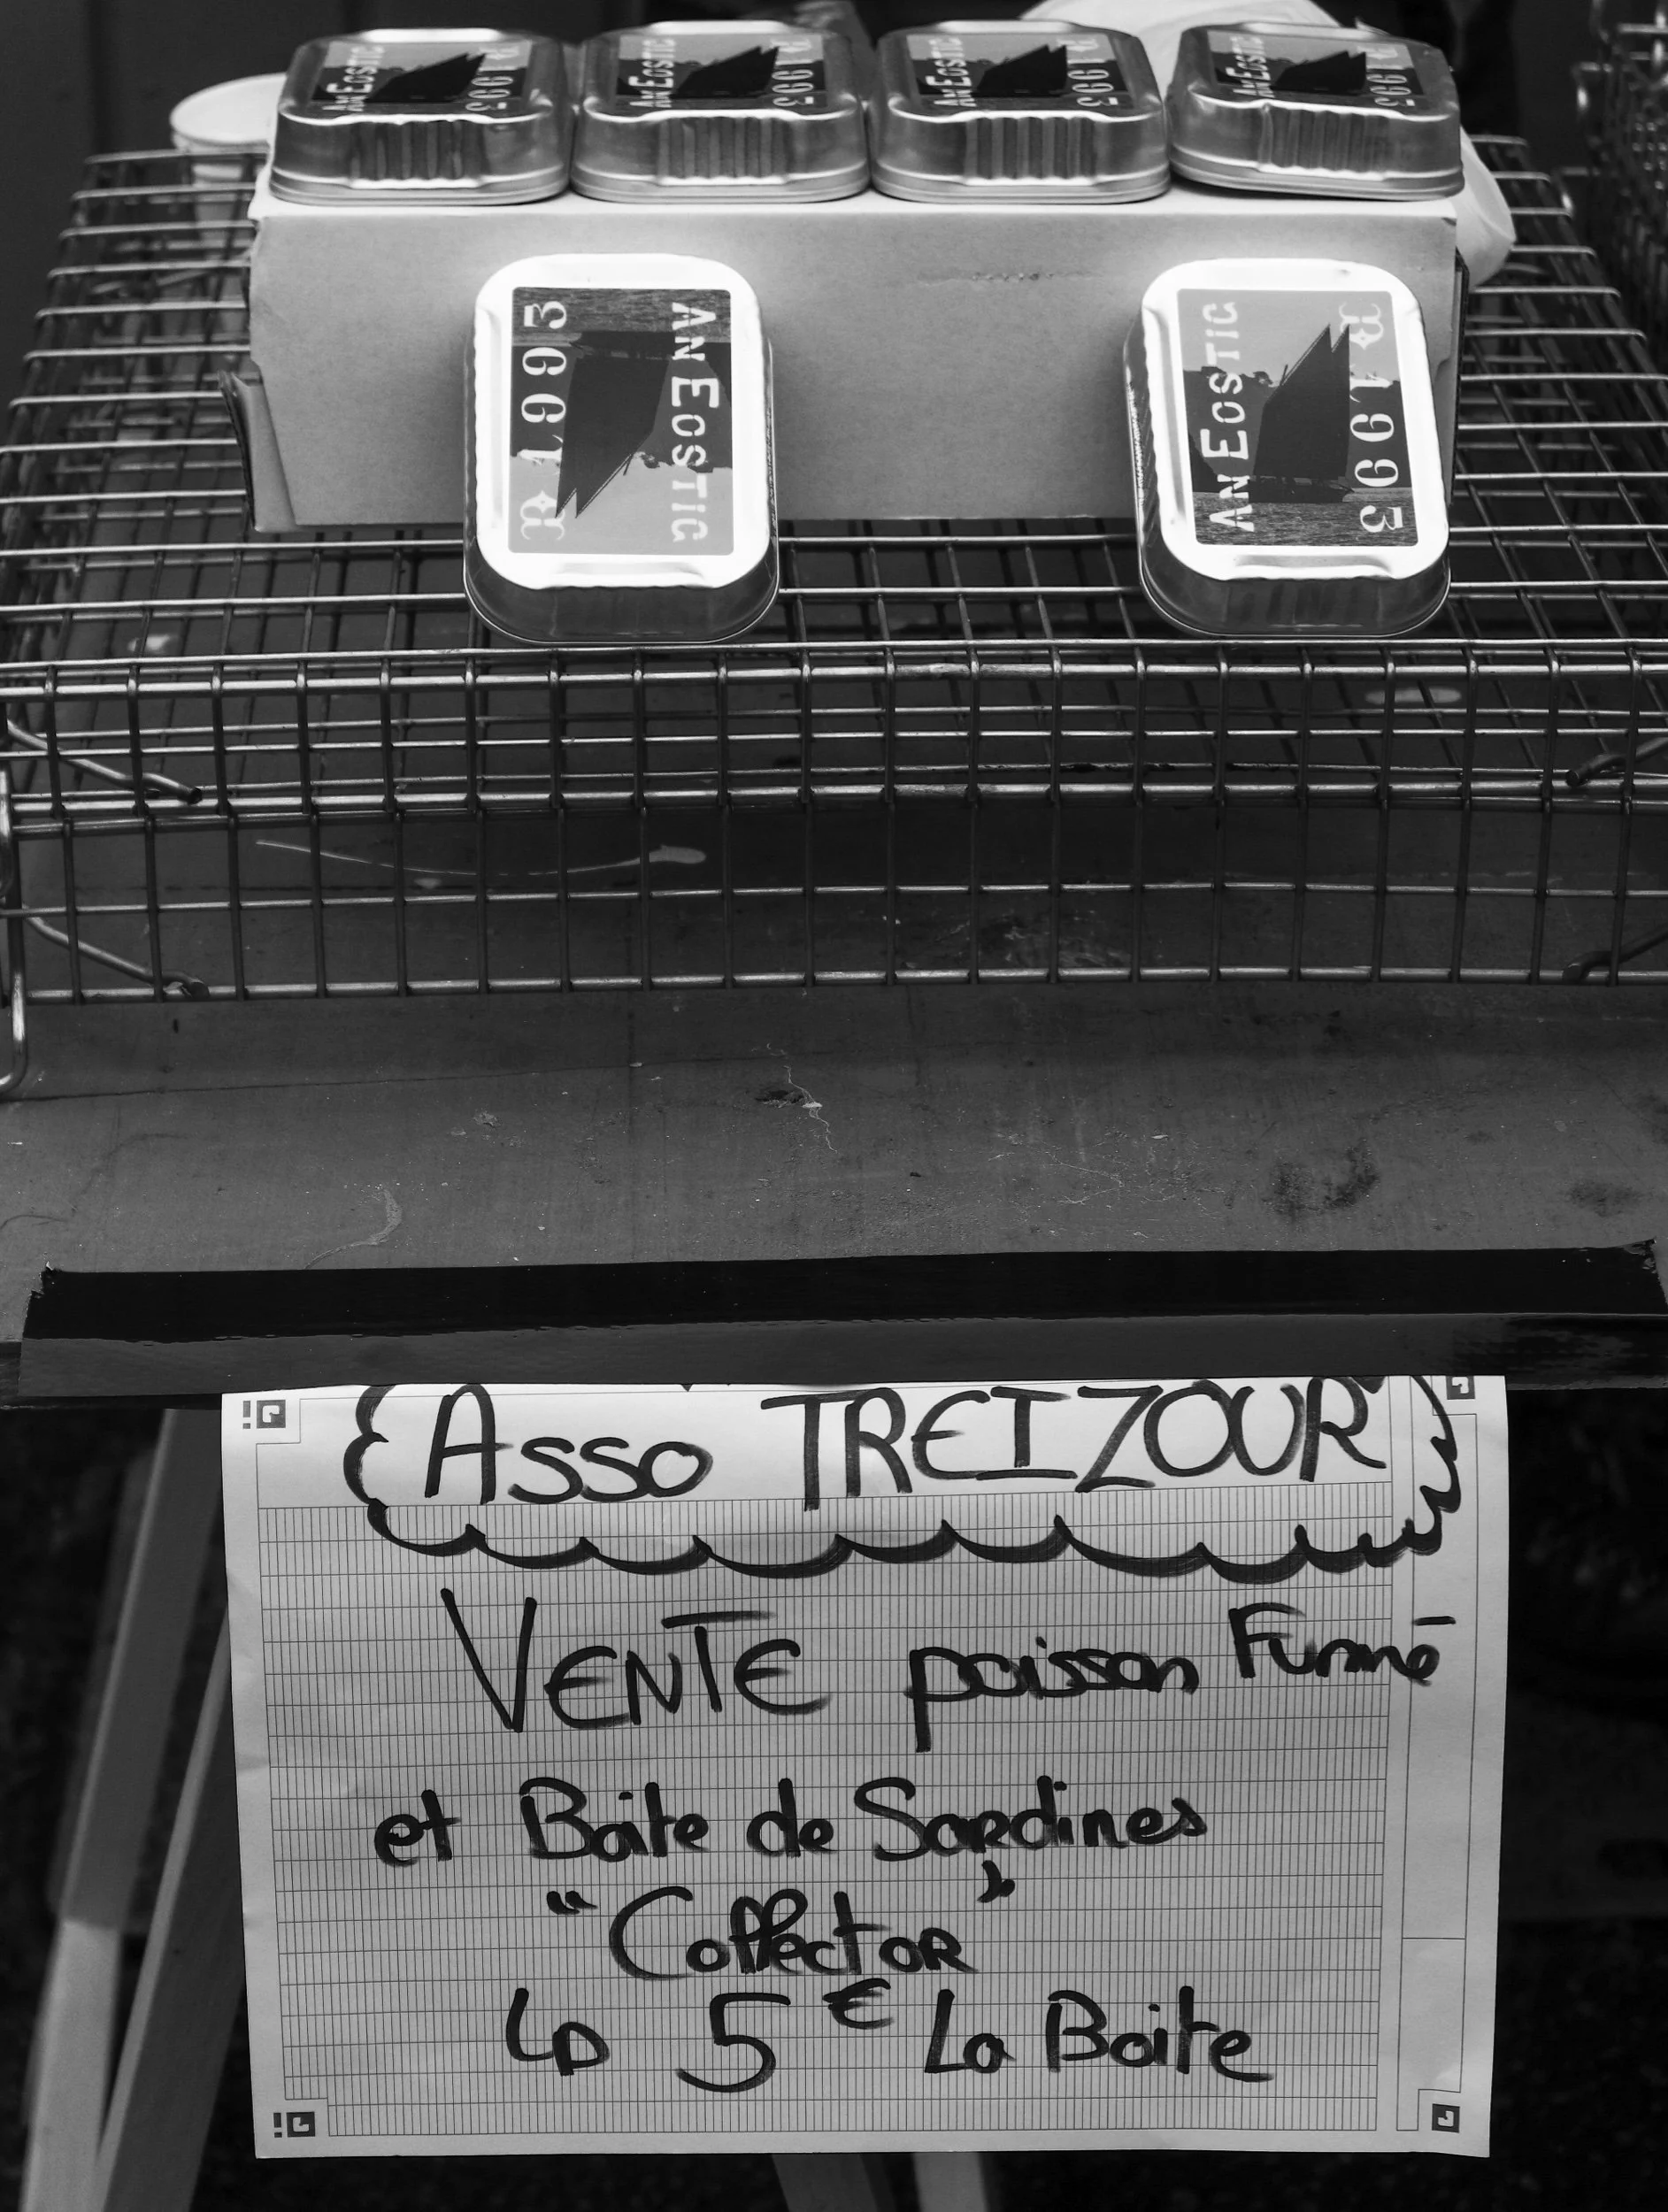 AN EOSTIC
1993
AN EOSTIC
1993
AN EOSTIC
1993
AN EOSTIC
1993
1993
AN EOSTIC
AN EOSTIC
1993
Asso TREIZOUR
VENTE poisson Fumé
et Boite de Sardines
"Collector"
5€ La Boite